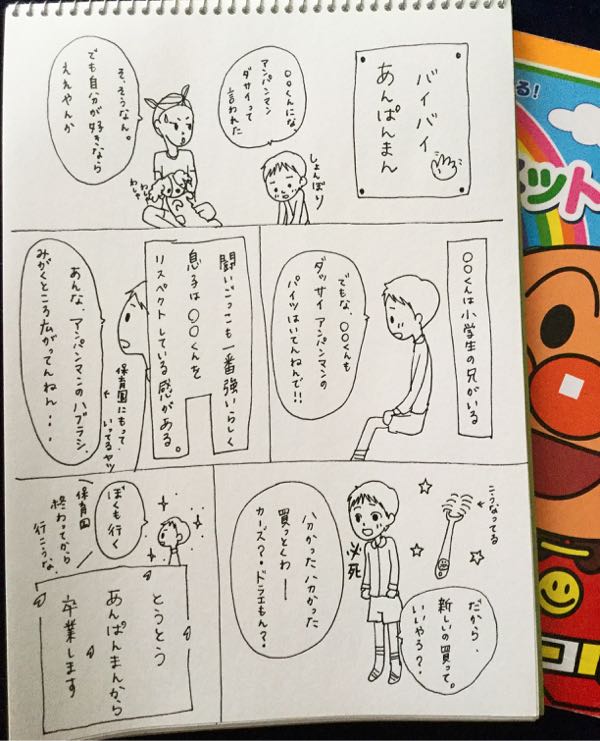 バイバイ
あんぱんまん
〇〇くんにな、
アンパンマン
ダサイって
言われた
しょんぼり
そ、そうなん。
でも自分が好きなら
ええやんか
わしゃ
わしゃ
〇〇くんは小学生の兄がいる
でもな、〇〇くんも
ダッサイアンパンマンの
パイツはいてんねんで!!
闘いごっこも一番強いらしく
息子は〇〇くんを
リスペクトしている感がある。
保育園にもって、
いってるヤツ
あんな、アンパンマンのハブラシ、
みがくところ広がってんねん・・・
こうなってる
だから、
新しいの買って。
いいやろ?
必死
ハ分かったハ分かった
買っとくわー
カーズ?・ドラエもん?
ぼくも行く
保育園
終わってから
行こうな、
とうとう
あんぱんまんから
卒業します
る!
ット